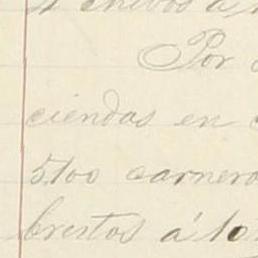 4 chivos á
Por
ciendas en
5.100 carnero
brestos á 10